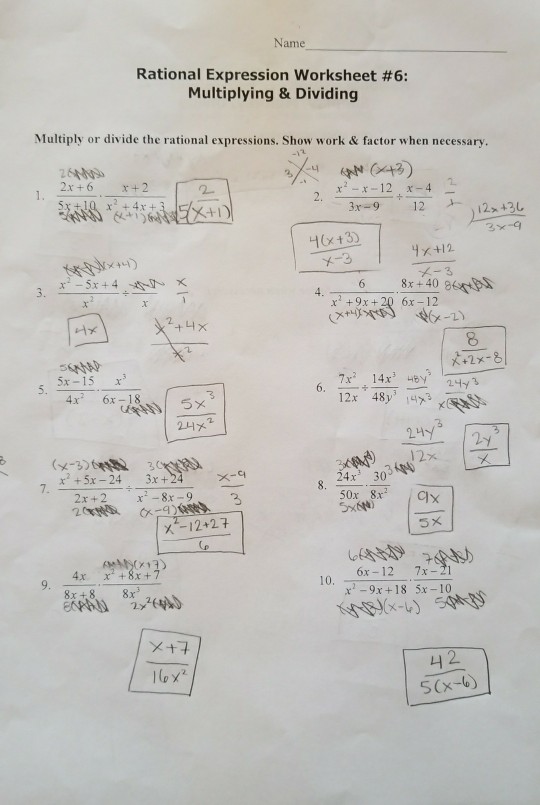 Name
Rational Expression Worksheet #6:
Multiplying & Dividing
Multiply or divide the rational expressions. Show work & factor when necessary.
1. (2x+6)/(5x+10) · (x+2)/(x²+4x+3)
(x+1)
2/(5(x+1))
2. (x²-x-12)/(3x-9) ÷ (x-4)/12
-12
3 -4
-1
(x+3)
(12x+36)/(3x-9)
4(x+3)/(x-3)
(4x+12)/(x-3)
3. (x²-5x+4)/x² ÷ /x
x/1
(x+4)
4x
(x²+4x)/x²
4. 6/(x²+9x+20) · (8x+40)/(6x-12)
8
(x+4)
(x-2)
8/(x²+2x-8)
5. (5x-15)/4x² · x³/(6x-18)
5
6
5x³/24x²
6. 7x²/12x ÷ 14x³/48y³
48y³/14x³
24y³/x
24y³/12x
2y³/x
7. (x²+5x-24)/(2x+2) ÷ (3x+24)/(x²-8x-9)
(x-3)
3
2
(x-9)
(x-9)/3
(x²-12+27)/6
8. 24x³/50x · 30/8x²
3
3
5x
9x/5x
9. 4x/(8x+8) · (x²+8x+7)/8x³
(x+7)
8
2x²
(x+7)/16x²
10. (6x-12)/(x²-9x+18) · (7x-21)/(5x-10)
6
7
(x-6)
5
42/(5(x-6))